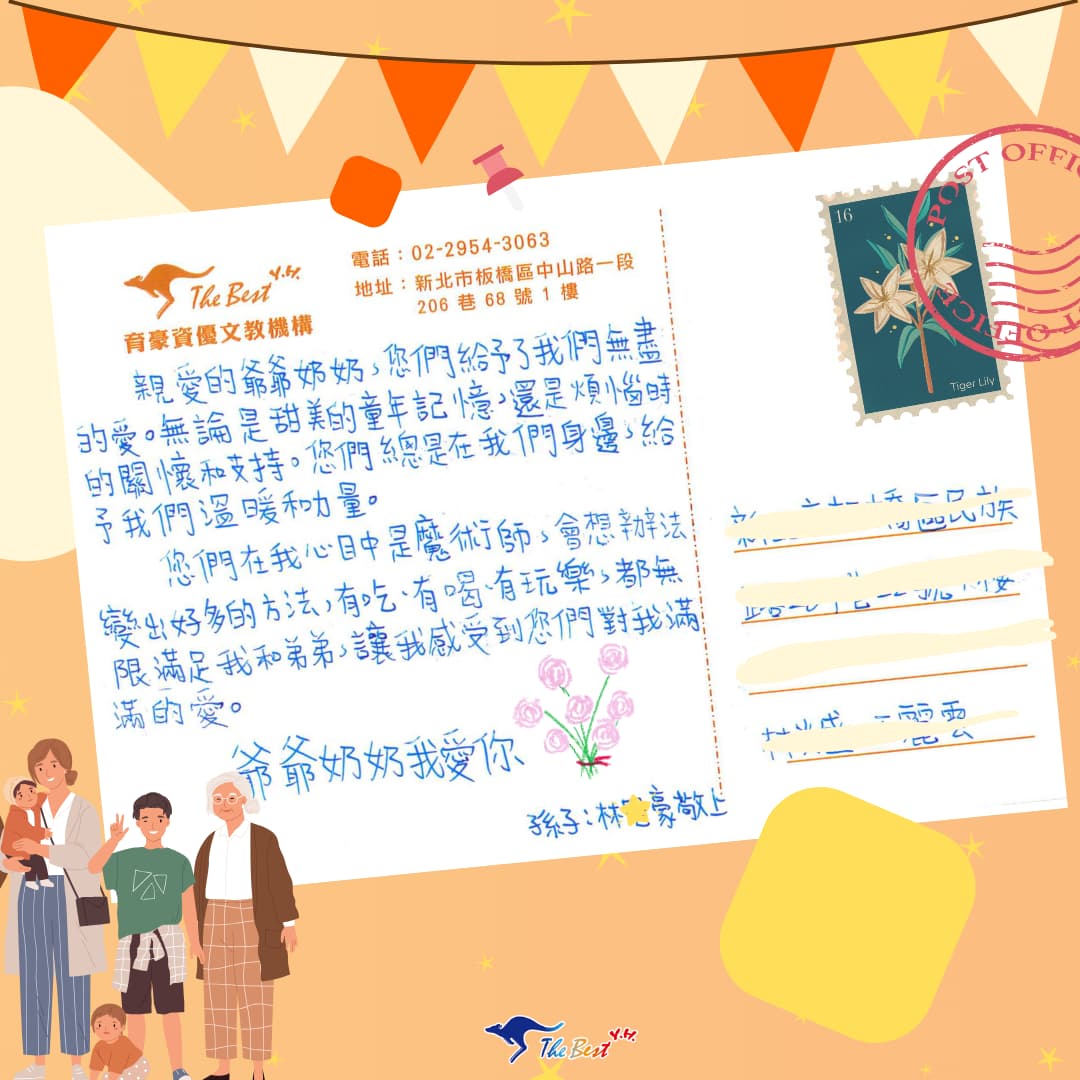 The Best Y.H.
育豪資優文教機構
電話：02-2954-3063
地址：新北市板橋區中山路一段
206 巷 68 號 1 樓
親愛的爺爺奶奶，您們給予了我們無盡
的愛。無論是甜美的童年記憶，還是煩惱時
的關懷和支持。您們總是在我們身邊，給
予我們溫暖和力量。
您們在我心目中是魔術師，會想辦法
變出好多的方法，有吃、有喝、有玩樂，都無
限滿足我和弟弟，讓我感受到您們對我滿
滿的愛。
爺爺奶奶我愛你
孫子：林豪敬上
16
Tiger Lily
POST OFFIC
T OFFICE
區民族
麗雲
The Best Y.H.